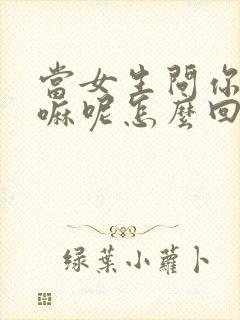 當女生問你
嘛呢怎麼回
綠葉小蘿卜